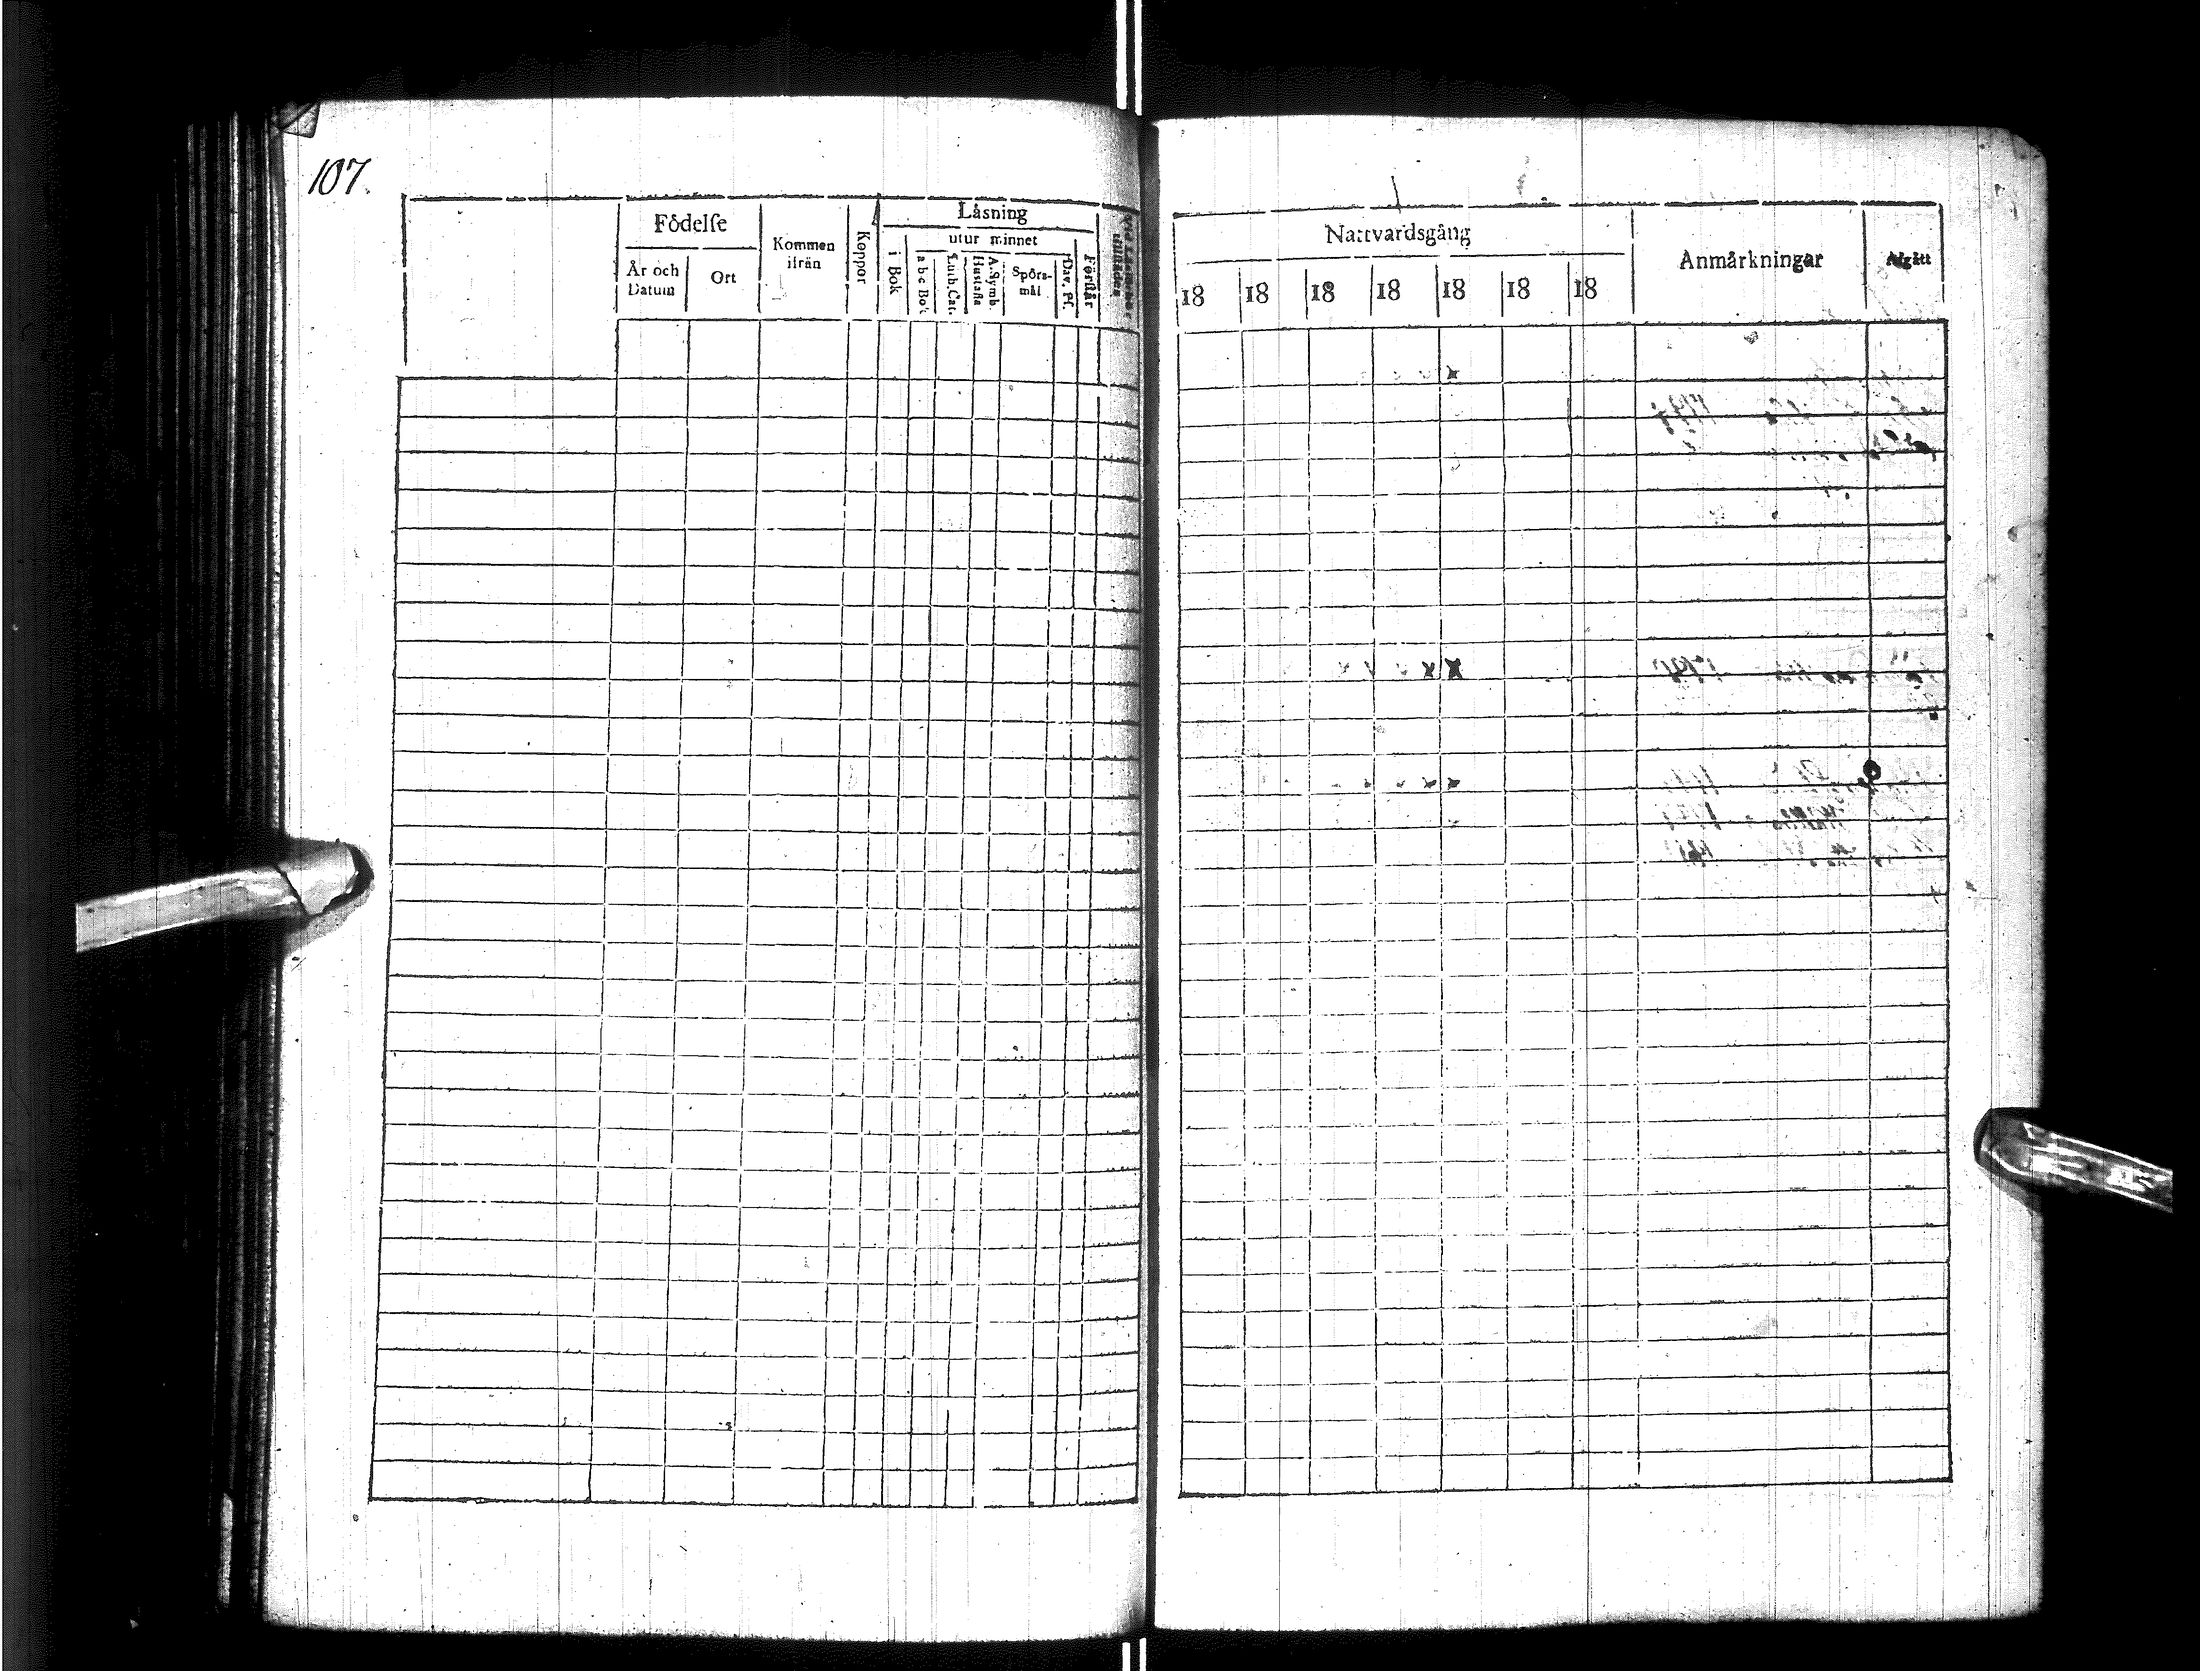 107.
Födelſe
År och Datum
Ort
Kommen ifrån
Koppor
Låsning
i Bok
utur minnet
a b c Bok
Luth. Cat.
Hustafla
A. Symb.
Spörs-mål
Dav. Pſ.
Förſtår
Nattvardsgång
18 18 18 18 18 18 18
Anmårkningar
Afgått